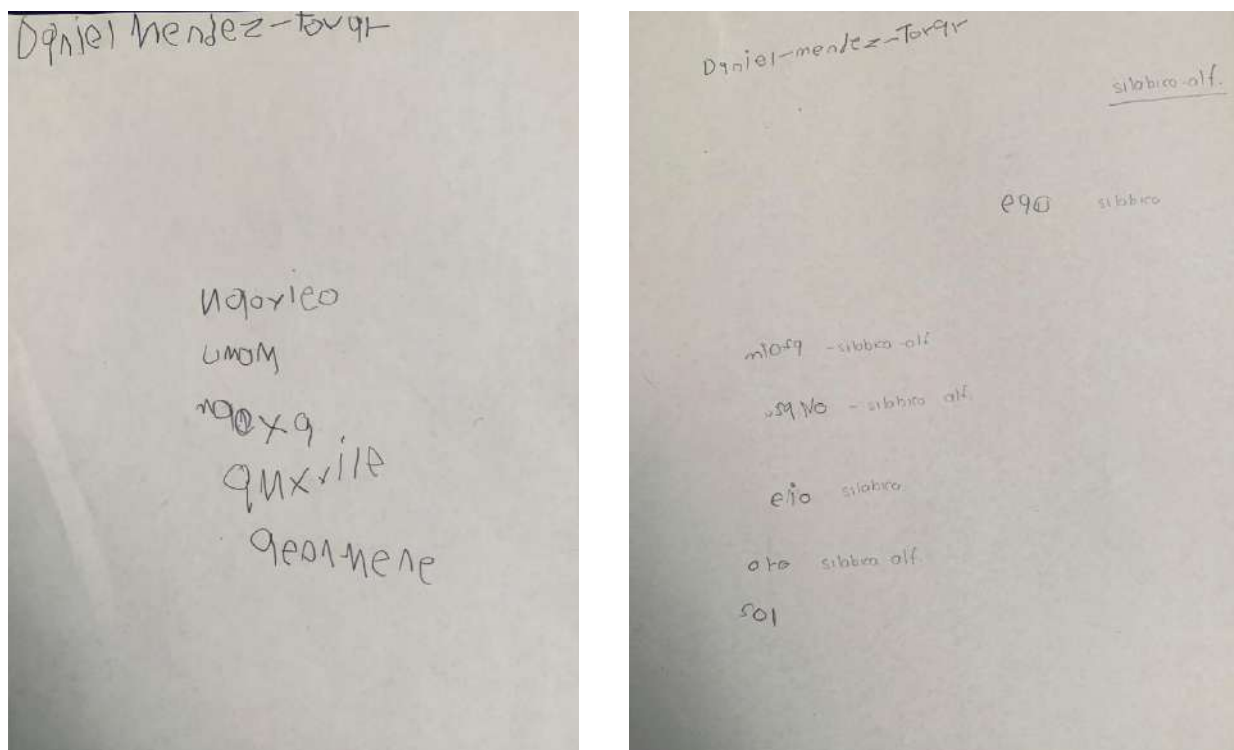 Daniel Mendez-Tovar
naorieo
umom
naoxa
quxrile
Daniel-mendez-Tovar
silabico-alf.
eao silabico
miosa - silabico alf
usaNo - silabico alf.
eio silabico
oro silabico alf.
sol